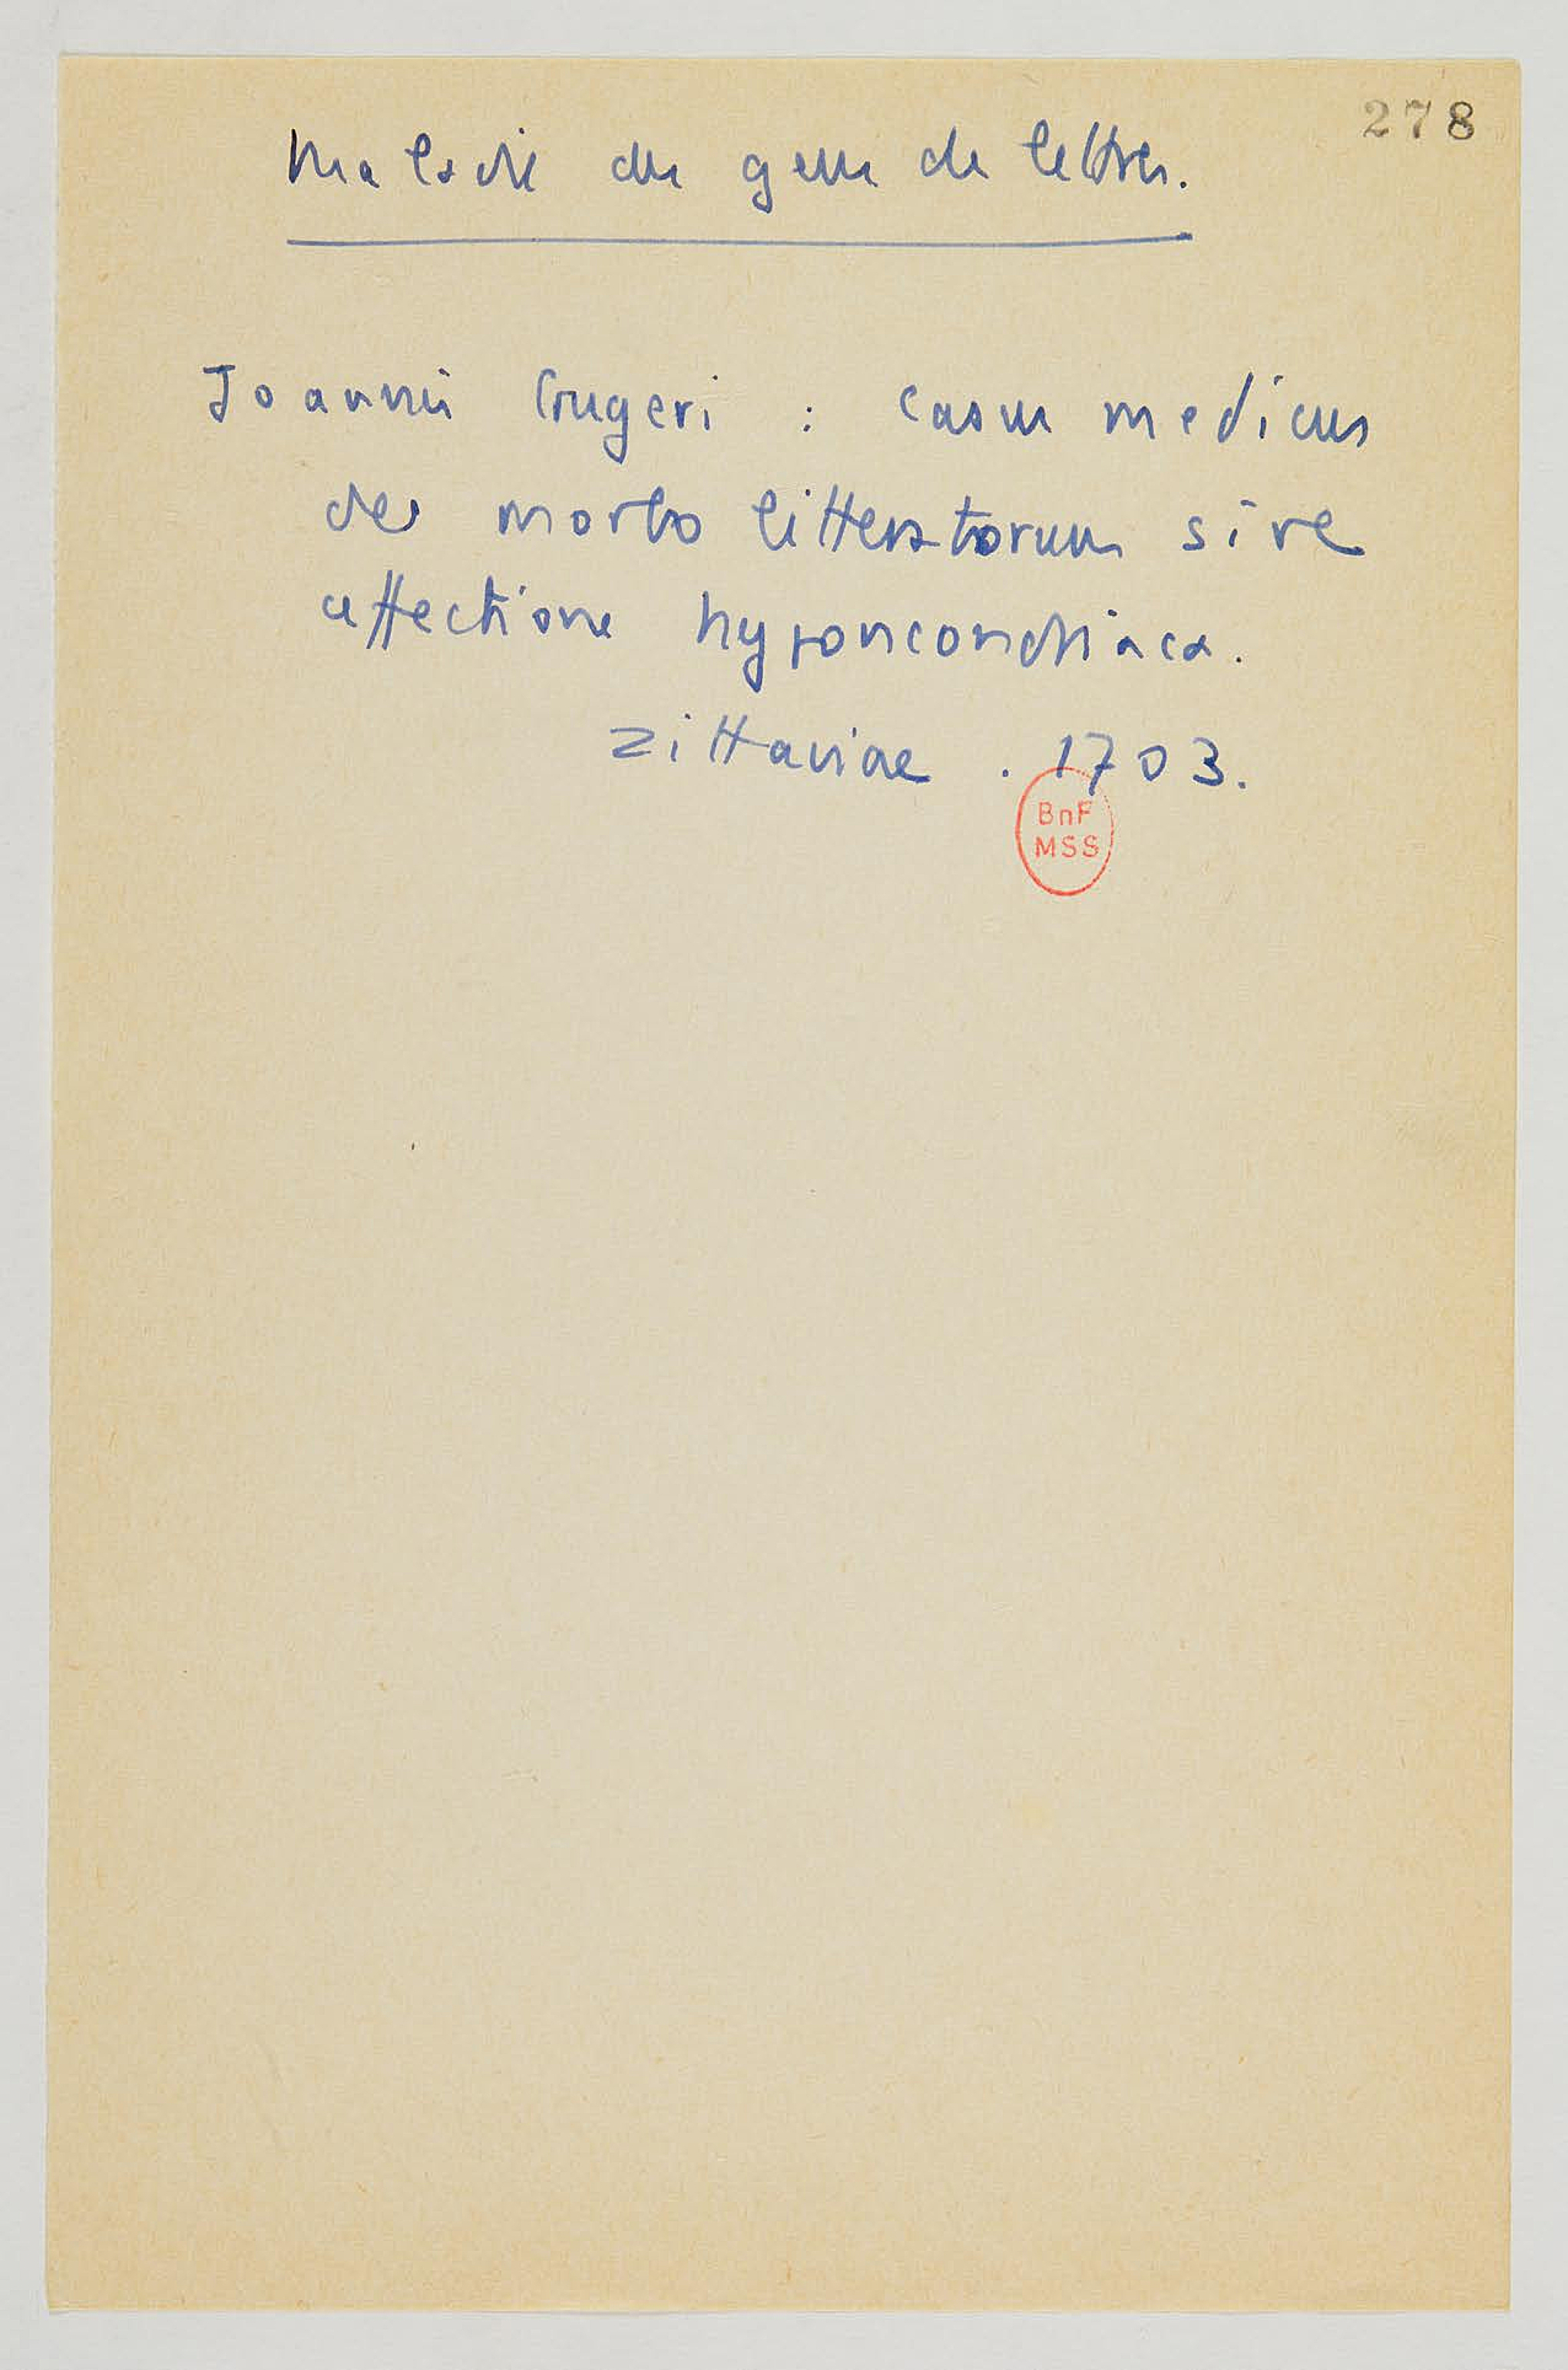 278
Maladie des gens de lettres.
Joannis Crugeri : Casus medicus
de morbo litteratorum sive
affectione hyponcondriaca.
Zittaviae . 1703.
BnF
MSS